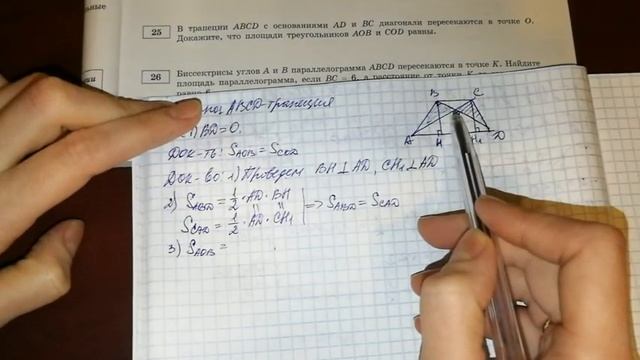 ельные
25
В трапеции ABCD с основаниями AD и BC диагонали пересекаются в точке O.
Докажите, что площади треугольников AOB и COD равны.
26
Биссектрисы углов A и B параллелограмма ABCD пересекаются в точке K. Найдите
площадь параллелограмма, если BC = 6, а расстояние от точки K
ABCD-трапеция
BD=O,
Док-ть: SAOB = SCOD
Док-во: 1) Проведем BH⊥AD, CH1⊥AD
2) SABD = 1/2 · AD · BH
SCAD = 1/2 · AD · CH1
=> SABD = SCAD
3) SAOB =
B C
A H H1 D